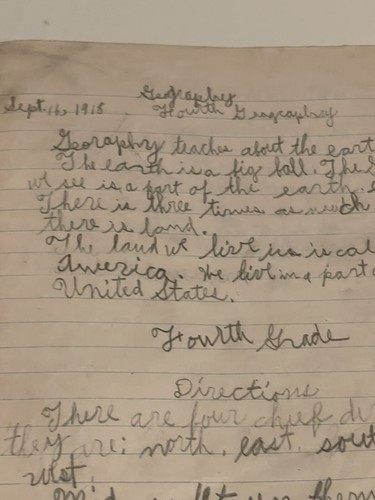 Geography
Sept. 16, 1918 Fourth Geography
Geography teaches about the eart
The earth is a big ball. The
we see is a part of the earth.
There is three times as much
there is land.
The land we live in is cal
America. We live in a part
United States.
Fourth Grade
Directions
There are four chief di
they are: north, east, sout
west.